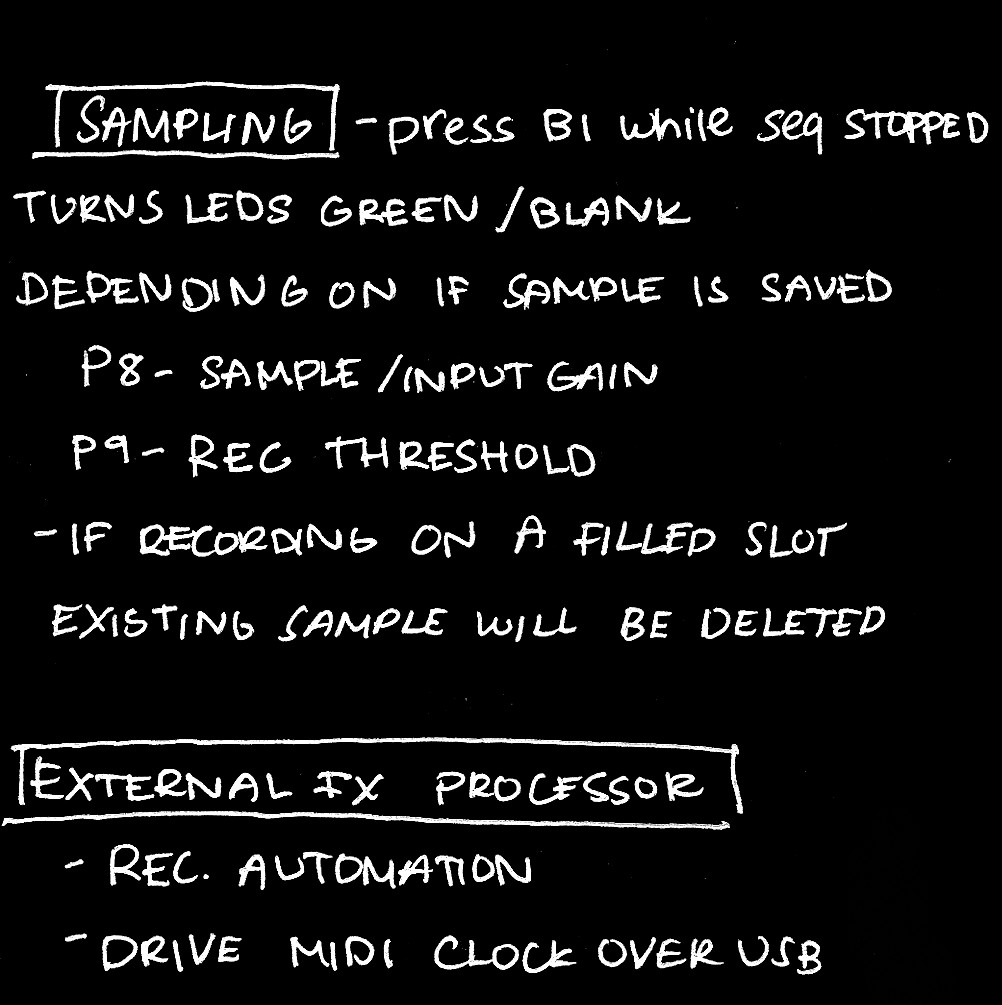 SAMPLING - press B1 while seq STOPPED
TURNS LEDS GREEN / BLANK
DEPENDING ON IF SAMPLE IS SAVED
P8 - SAMPLE / INPUT GAIN
P9 - REC THRESHOLD
- IF RECORDING ON A FILLED SLOT
EXISTING SAMPLE WILL BE DELETED
EXTERNAL FX PROCESSOR
- REC. AUTOMATION
- DRIVE MIDI CLOCK OVER USB